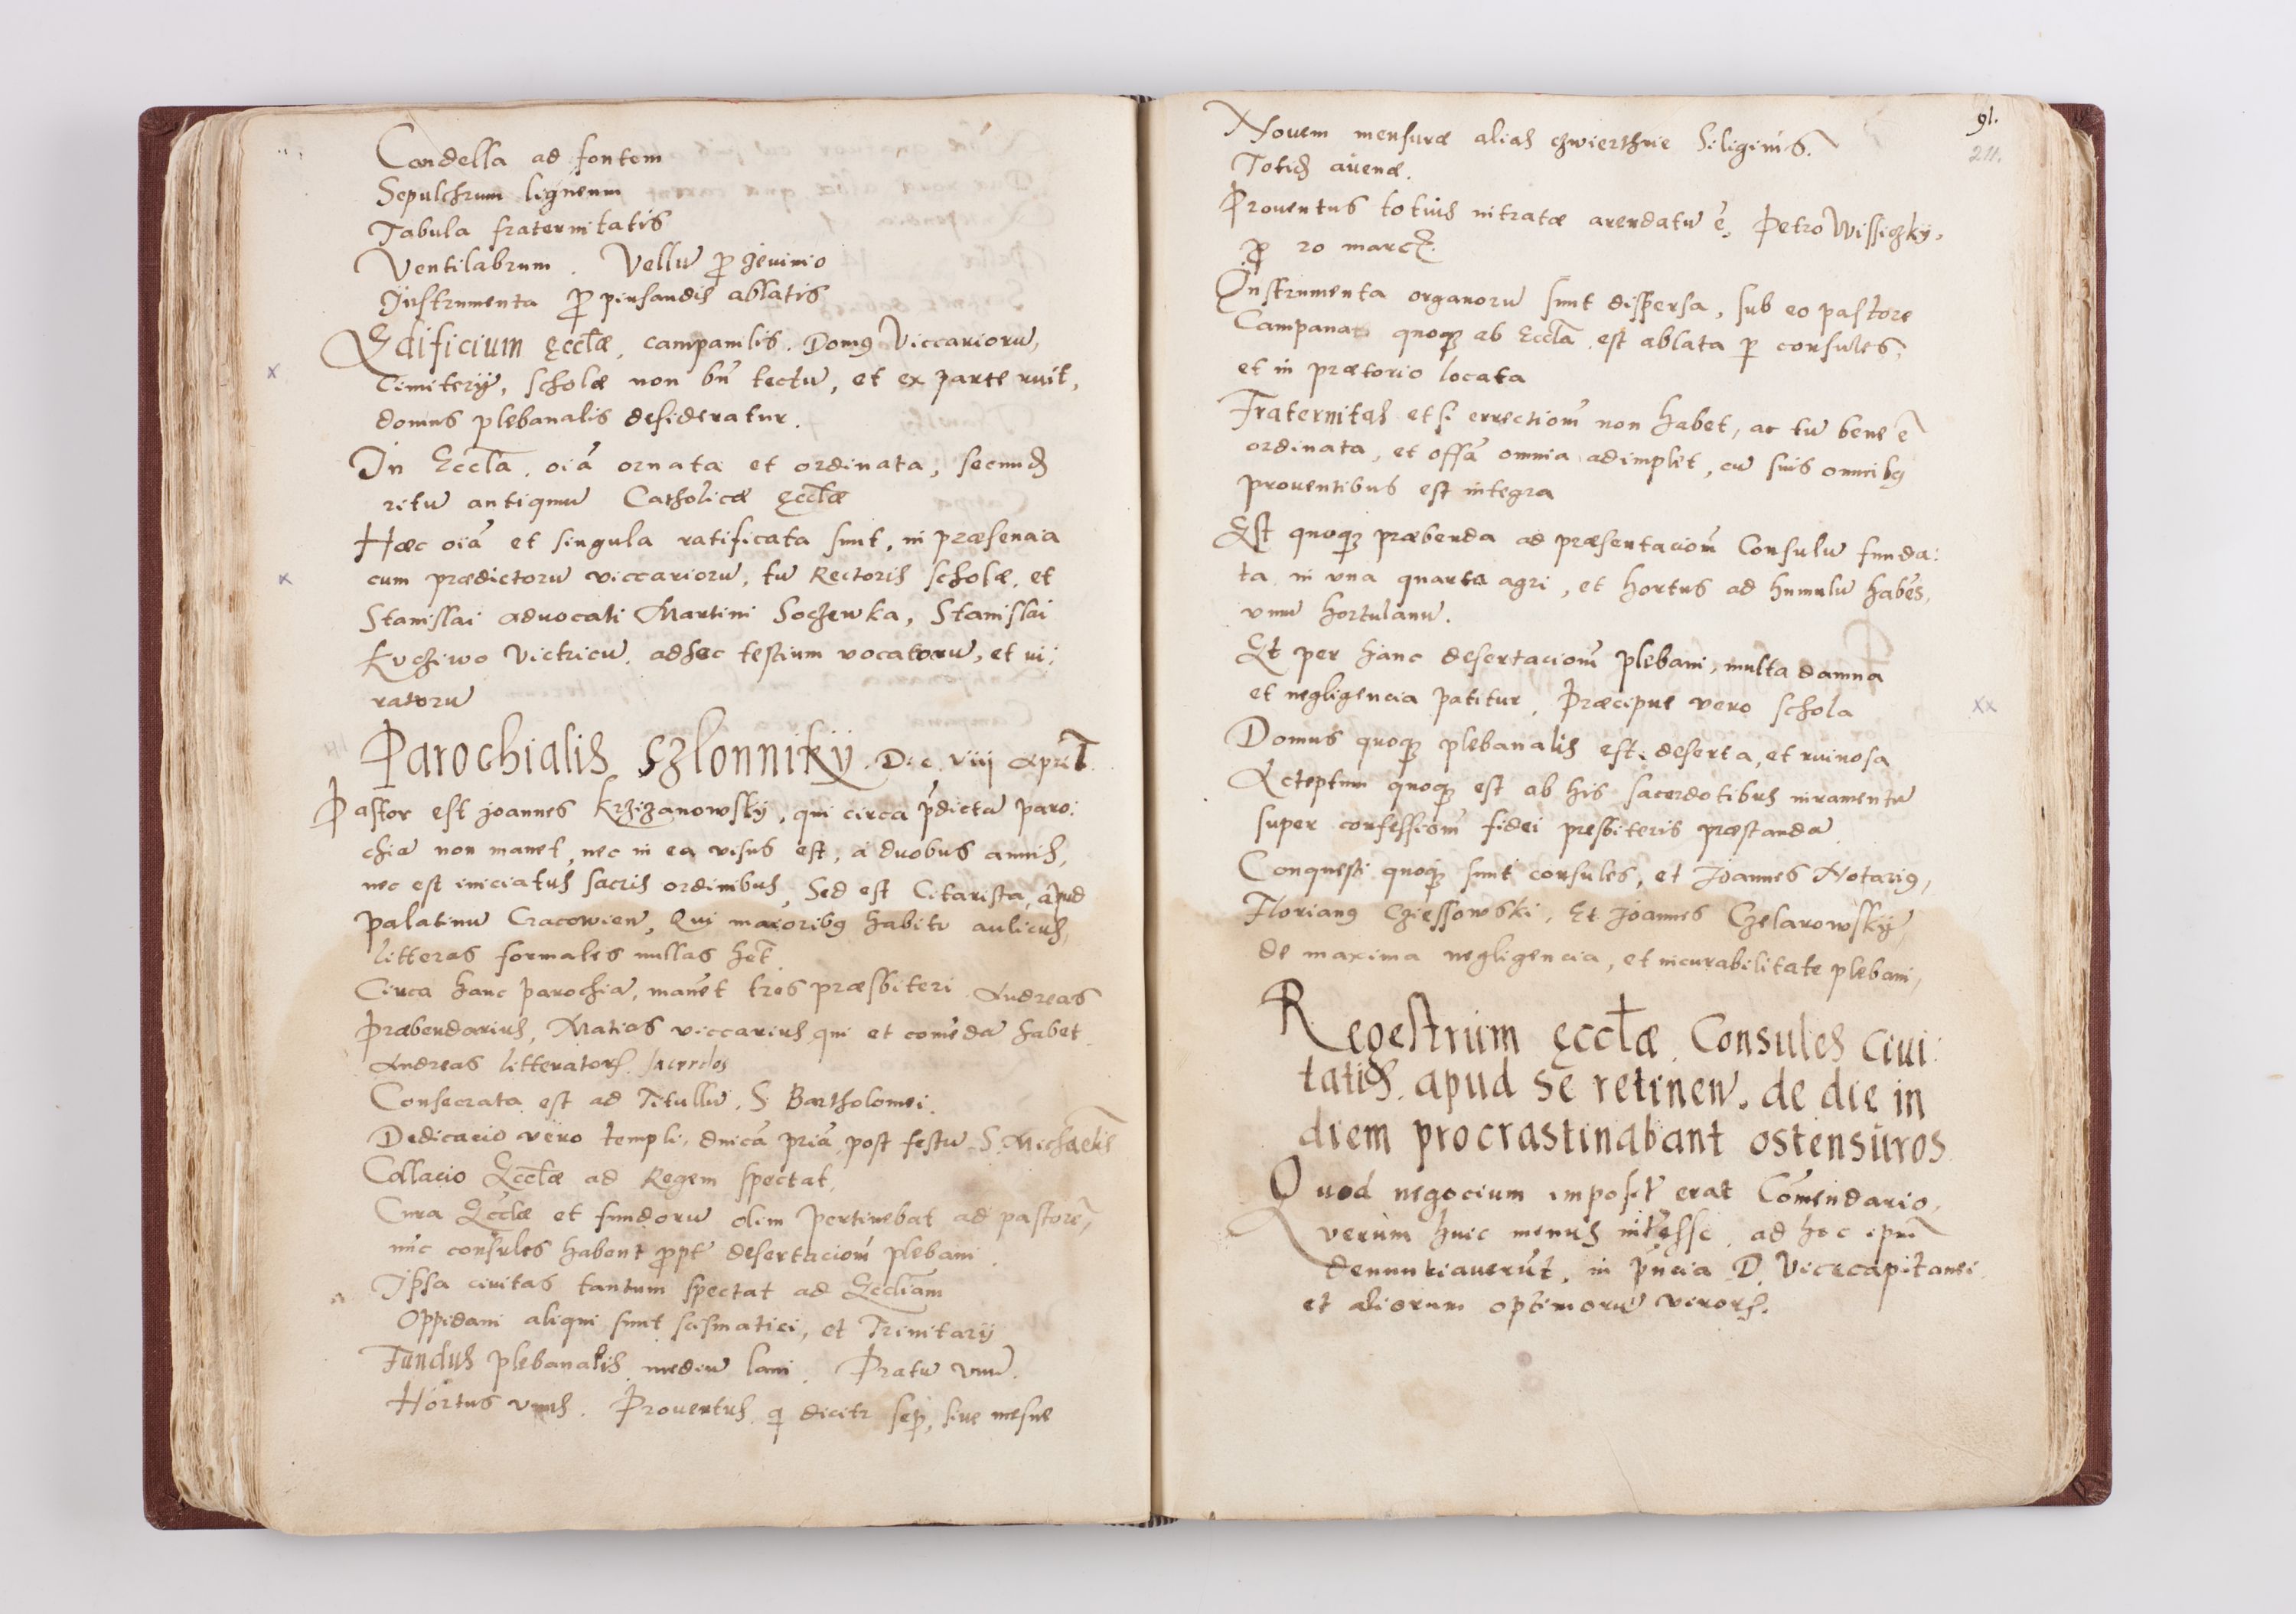 Candella ad fontem
Sepulchrum ligneum
Tabula fraternitatis
Ventilabrum. Vellũ p jeiunio
Instrumenta p pinsandis ablatis
Edificium ęcctæ, campanilis. Domg Viccariorũ,
Cimiterÿ, scholæ non bñ tectũ, et ex parte ruit,
domus plebanalis desideratur.
In Eccła, oiã ornata et ordinata, secund
ritũ antiquũ Catholicæ ęcctæ
Hæc oiã et singula ratificata sunt, in præsencia
cum prædictorũ viccariorũ, tũ Rectoris scholæ, et
Stanislai advocati Martini Soczewka, Stanislai
Kvcziwo Victricũ, adhec testium vocatorũ, et iu:
ratorũ
Parochialis Szlonnikÿ. Die viij April
Pastor est joannes Krzizanowskÿ, qui circa p̃dictã paro:
chiã non manet, nec in ea visus est, a duobus annis,
nec est iniciatus sacris ordinibus, Sed est Citarista, apud
palatinũ Cracowien, Qui maioribg habitũ aulicus,
litteras formates nullas het
Circa hanc parochiã, manẽt tres præsbiteri Andreas
Præbendarius, Matias viccarius, qui et comẽdã habet
Andreas litterator sacerdos
Consecrata est ad Titullũ, S. Bartholomei.
Dedicacio vero templi, dnicã priã, post festũ S. Michaelis
Collacio Ecctæ ad Regem spectat,
Cura Ecclæ et fundorũ olim pertinebat ad pastorẽ,
nũc consules habent ppt desertacioñ plebani
Ipsa civitas tantum spectat ad Eccliam
Oppidani aliqui sunt scismatici, et Trinitarÿ
Fundus plebanalis, mediũ lani. Pratũ vnũ.
Hortus vnus. Prouentus q dicitr sep, siue mesne
91.
211.
Nouem mensuræ alias czwierthnie Siliginis.
Totid auenæ.
Prouentus totius arendatũ ẽ, Petro Wissiczkÿ,
p 20 marc.
Instrumenta organorũ sunt dispersa, sub eo pastore
Campana quoq ab Eccła est ablata p consules,
et in prætorio locata
Fraternitas etsi errectioñ non habet, ac tũ bene ẽ
ordinata, et offã omnia adimplet, cũ suis omnibg
prouentibus est integra
Est quoq præbenda ad præsentacioñ Consulũ funda:
ta, in vna quarta agri, et hortus ad humulũ habẽs,
vnũ hortulanũ.
Et per hanc desertacioñ plebani, multa damna
et negligencia patitur, Præcipue vero schola
Domus quoq plebanalis est deserta, et ruinosa
Acceptum quoq est ab his sacerdotibus iuramentũ
super confessioñ fidei presbiteris præstandã
Conquesti quoq sunt consules, et Joannes Notarig,
Floriang Cziessowski, Et Joannes Czelarowskÿ,
de maxima negligencia, et incurabilitate plebani,
Regestrum ęcctæ, Consules ciui:
tatis, apud se retinen, de die in
diem procrastinabant ostensuros
Quod negocium imposit erat Comẽndario,
verum huic minus intẽsse, ad hoc ipm
denuntiauerũt, in pñcia D. Vicecapitanei,
et aliorum optimorũ viror.